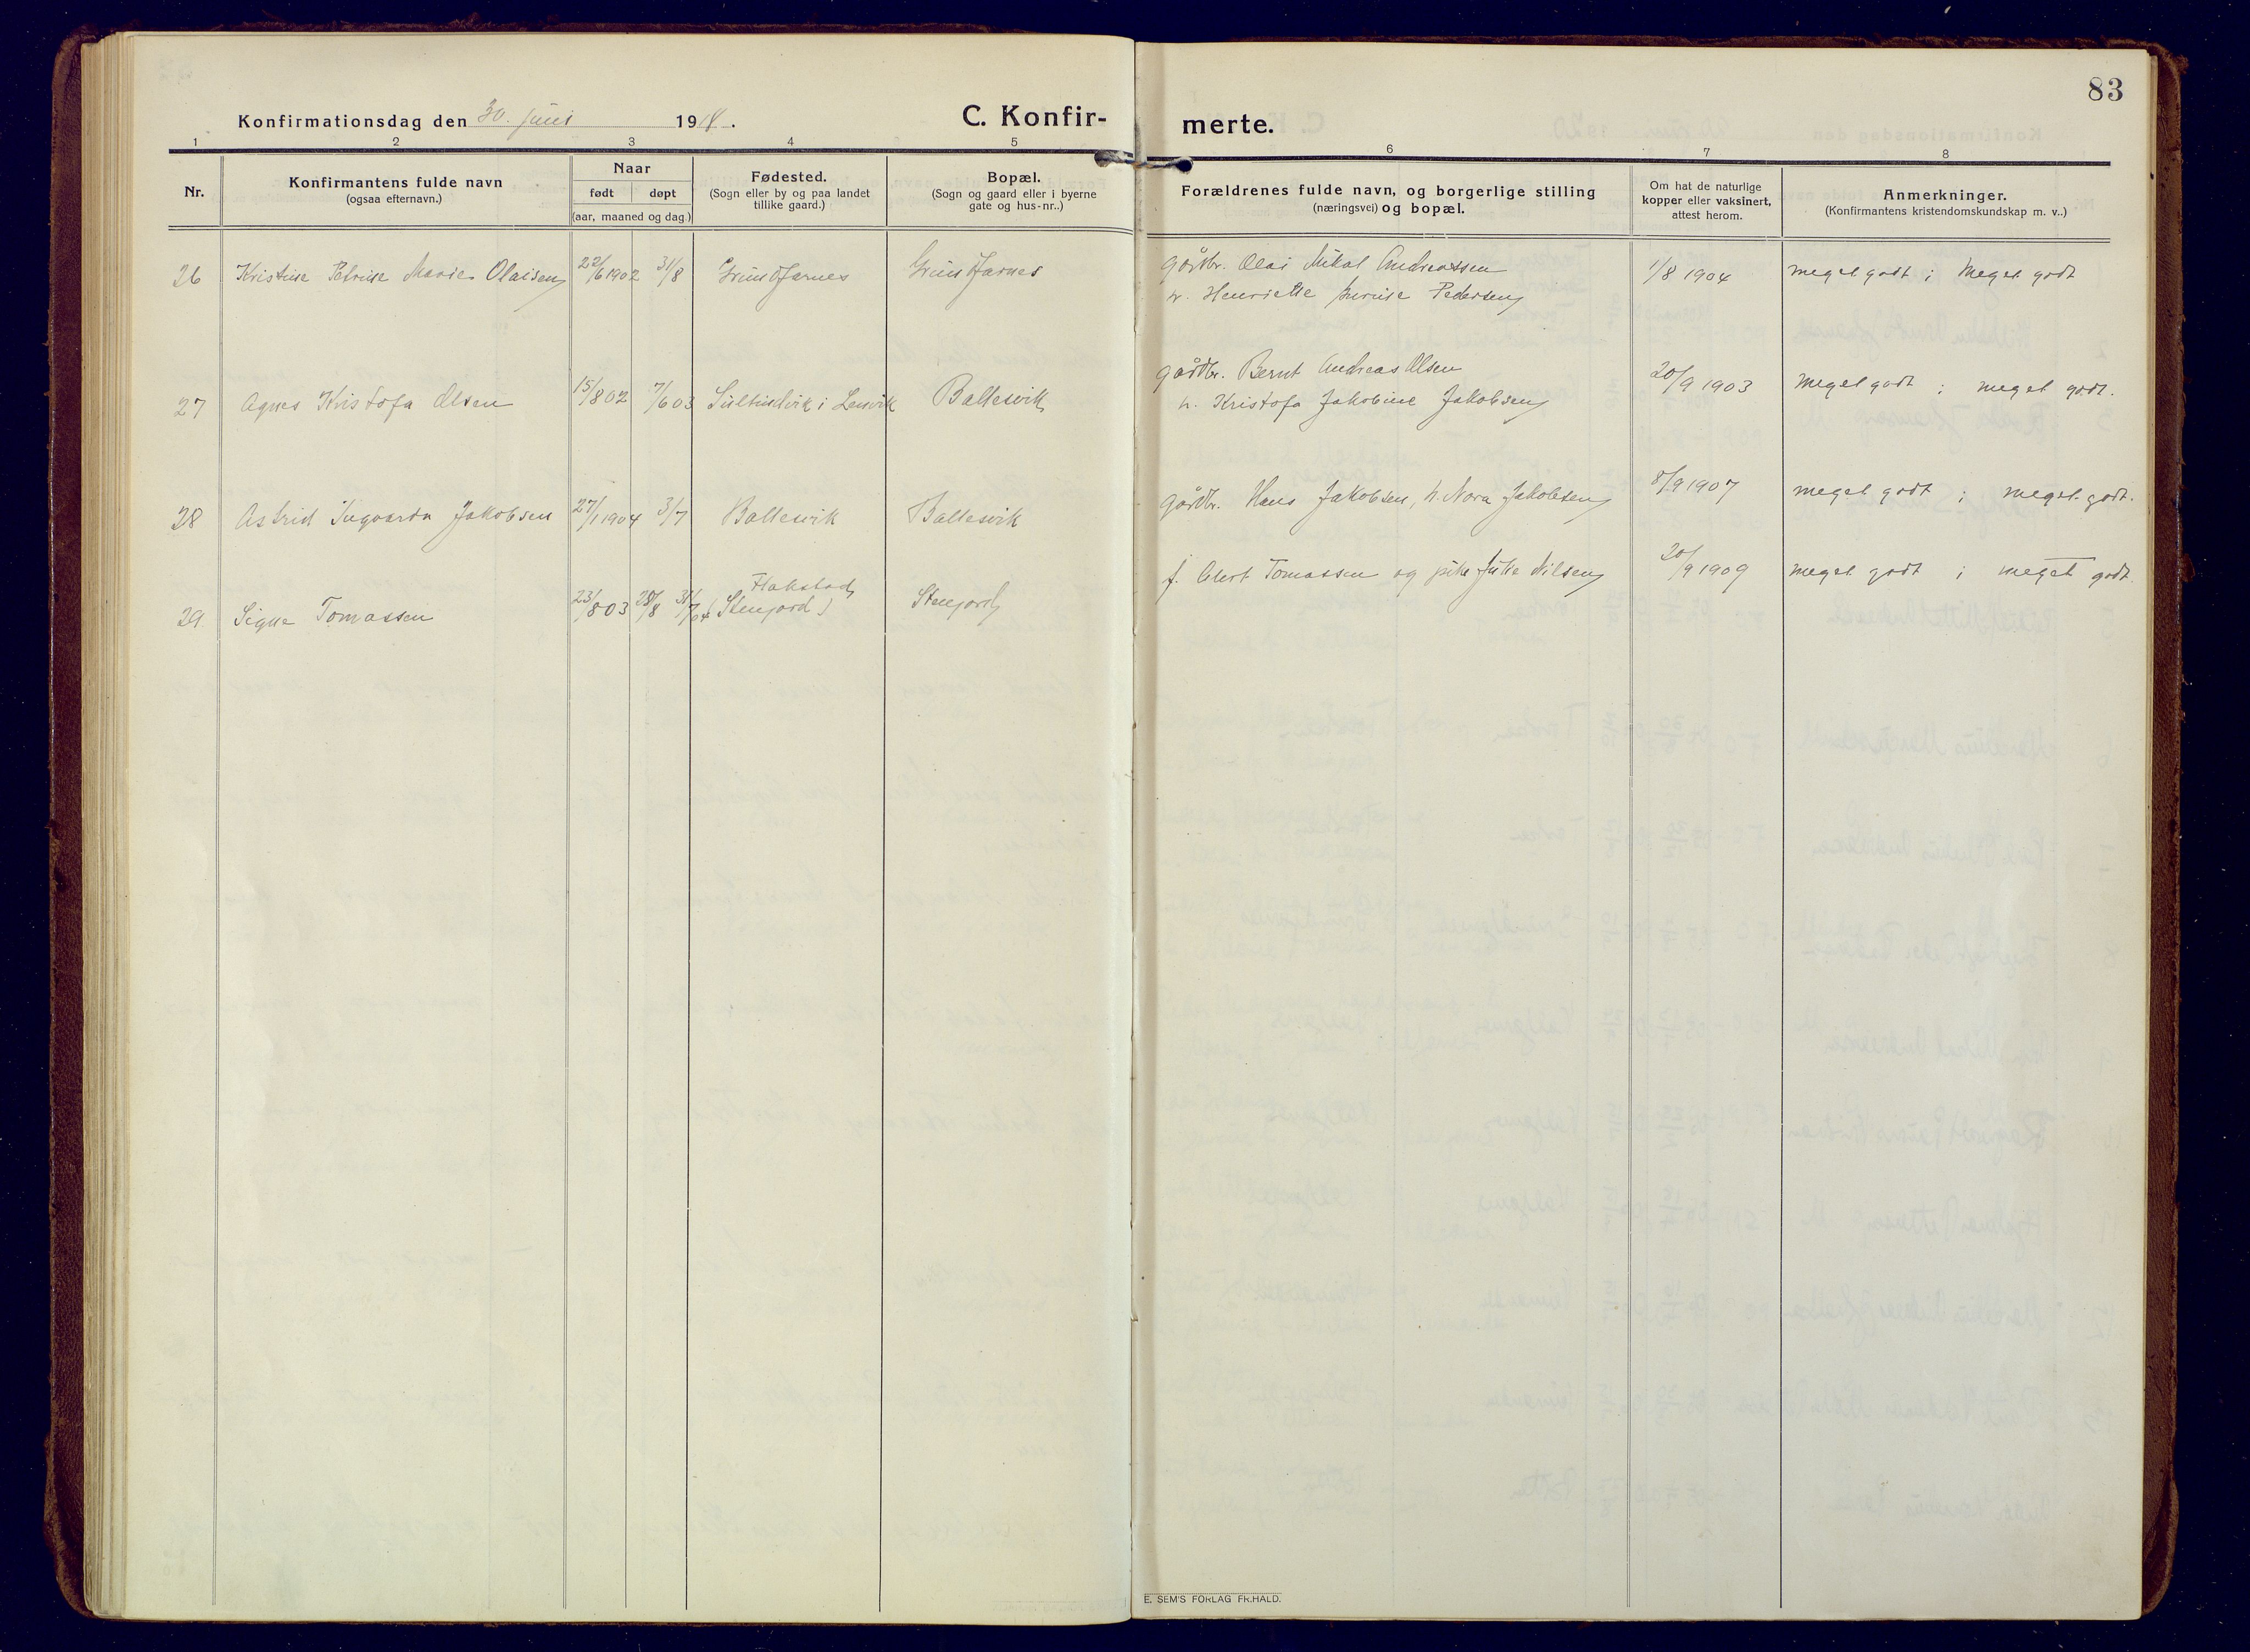 83
Konfirmationsdag den 30. juni 1918.
C. Konfir-
merte.
1 2 3 4 5 6 7 8
Nr.
Konfirmantens fulde navn
(ogsaa efternavn.)
Naar
født døpt
(aar, maaned og dag.)
Fødested.
(Sogn eller by og paa landet
tillike gaard.)
Bopæl.
(Sogn og gaard eller i byerne
gate og hus-nr..)
Forældrenes fulde navn, og borgerlige stilling
(næringsvei) og bopæl.
Om hat de naturlige
kopper eller vaksinert,
attest herom.
Anmerkninger.
(Konfirmantens kristendomskundskap m. v..)
26 Kristine Petrine Marie Olaisen 22/6 1902 31/8 Grundfarnes Grundfarnes
gårdbr. Olai Mikal Andreassen
h. Henriette Pedersen
1/8 1904 meget godt ; meget godt
27 Agnes Kristofa Olsen 15/8 02 7/6 03 i Lenvik Ballesvik
gårdbr. Bernt Andreas Olsen
h. Kristofa Jakobine Jakobsen
20/9 1903 meget godt ; meget godt.
28 Astrid Ingvarda Jakobsen 27/1 1904 3/7 Ballesvik Ballesvik
gårdbr. Hans Jakobsen, h. Nora Jakobsen
8/9 1907 meget godt ; meget godt.
29 Signe Tomassen 23/8 03 28/8 31/7 04 Flakstad
(Stenjord) Stenjord
f. Tomassen og pike Julie Nilsen
20/9 1909 meget godt ; meget godt.
E. SEM'S FORLAG FR.HALD.